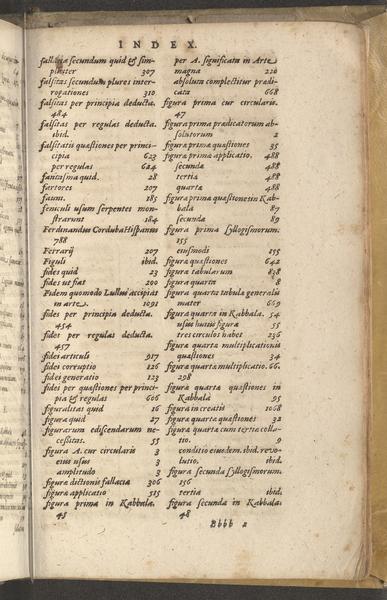 INDEX.
fallacia secundum quid & sim-
pliciter 307
falsitas secundum plures inter-
rogationes 310
falsitas per principia deducta.
484
falsitas per regulas deducta.
ibid.
falsitatis quæstiones per princi-
cipia 623
per regulas 624
fantasma quid. 28
fartores 207
fauni. 185
feniculi usum serpentes mon-
strarunt 184
Ferdinandus Corduba Hispanus
788
Ferrarij 207
Figuli ibid.
fides quid 23
fides ut fiat 200
Fidem quomodo Lullius accipiat
in arte. 1091
fides per principia deducta.
454
fides per regulas deducta.
457
fidei articuli 917
fidei corruptio 126
fidei generatio 123
fidei per quæstiones per princi-
pia & regulas 606
figuralitas quid 16
figura quid 27
figurarum ediscendarum ne-
cessitas. 55
figura A. cur circularis 3
eius usus 3
amplitudo 3
figura dictionis fallacia 306
figura applicatio 515
figura prima in Kabbala.
45
per A. significata in Arte
magna 220
absoluta complectitur prædi-
cata 668
figura prima cur circularis.
47
figura prima prædicatorum ab-
solutorum 2
figura prima quæstiones 35
figura prima applicatio. 488
secunda 488
tertia 488
quarta 488
figura prima quæstiones in Kab-
bala 87
secunda 89
figura prima syllogismorum.
155
eiusmodi 155
figura quæstiones 642
figura tabularum 838
figura quarta 8
figura quarta tabula generalis
mater 669
figura quarta in Kabbala. 54
usus huius figura 55
tres circulos habet 236
figura quarta multiplicationis
quæstiones 34
figura quarta multiplicatio. 66.
298
figura quarta quæstiones in
Kabbala 95
figura in creatis 1068
figura quarta quæstiones 32
figura quarta cum tertia colla-
tio. 9
conditio eiusdem. ibid. revo-
lutio. ibid.
figura secunda syllogismorum.
156
tertia ibid.
figura secunda in Kabbala.
48
Bbbb 2